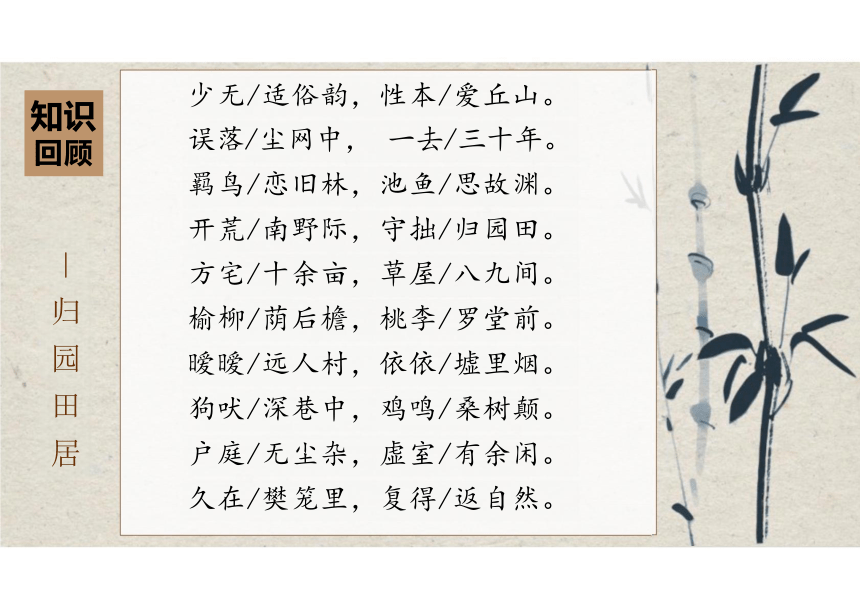 知识
回顾
—归园田居
少无/适俗韵，性本/爱丘山。
误落/尘网中， 一去/三十年。
羁鸟/恋旧林，池鱼/思故渊。
开荒/南野际，守拙/归园田。
方宅/十余亩，草屋/八九间。
榆柳/荫后檐，桃李/罗堂前。
暧暧/远人村，依依/墟里烟。
狗吠/深巷中，鸡鸣/桑树颠。
户庭/无尘杂，虚室/有余闲。
久在/樊笼里，复得/返自然。